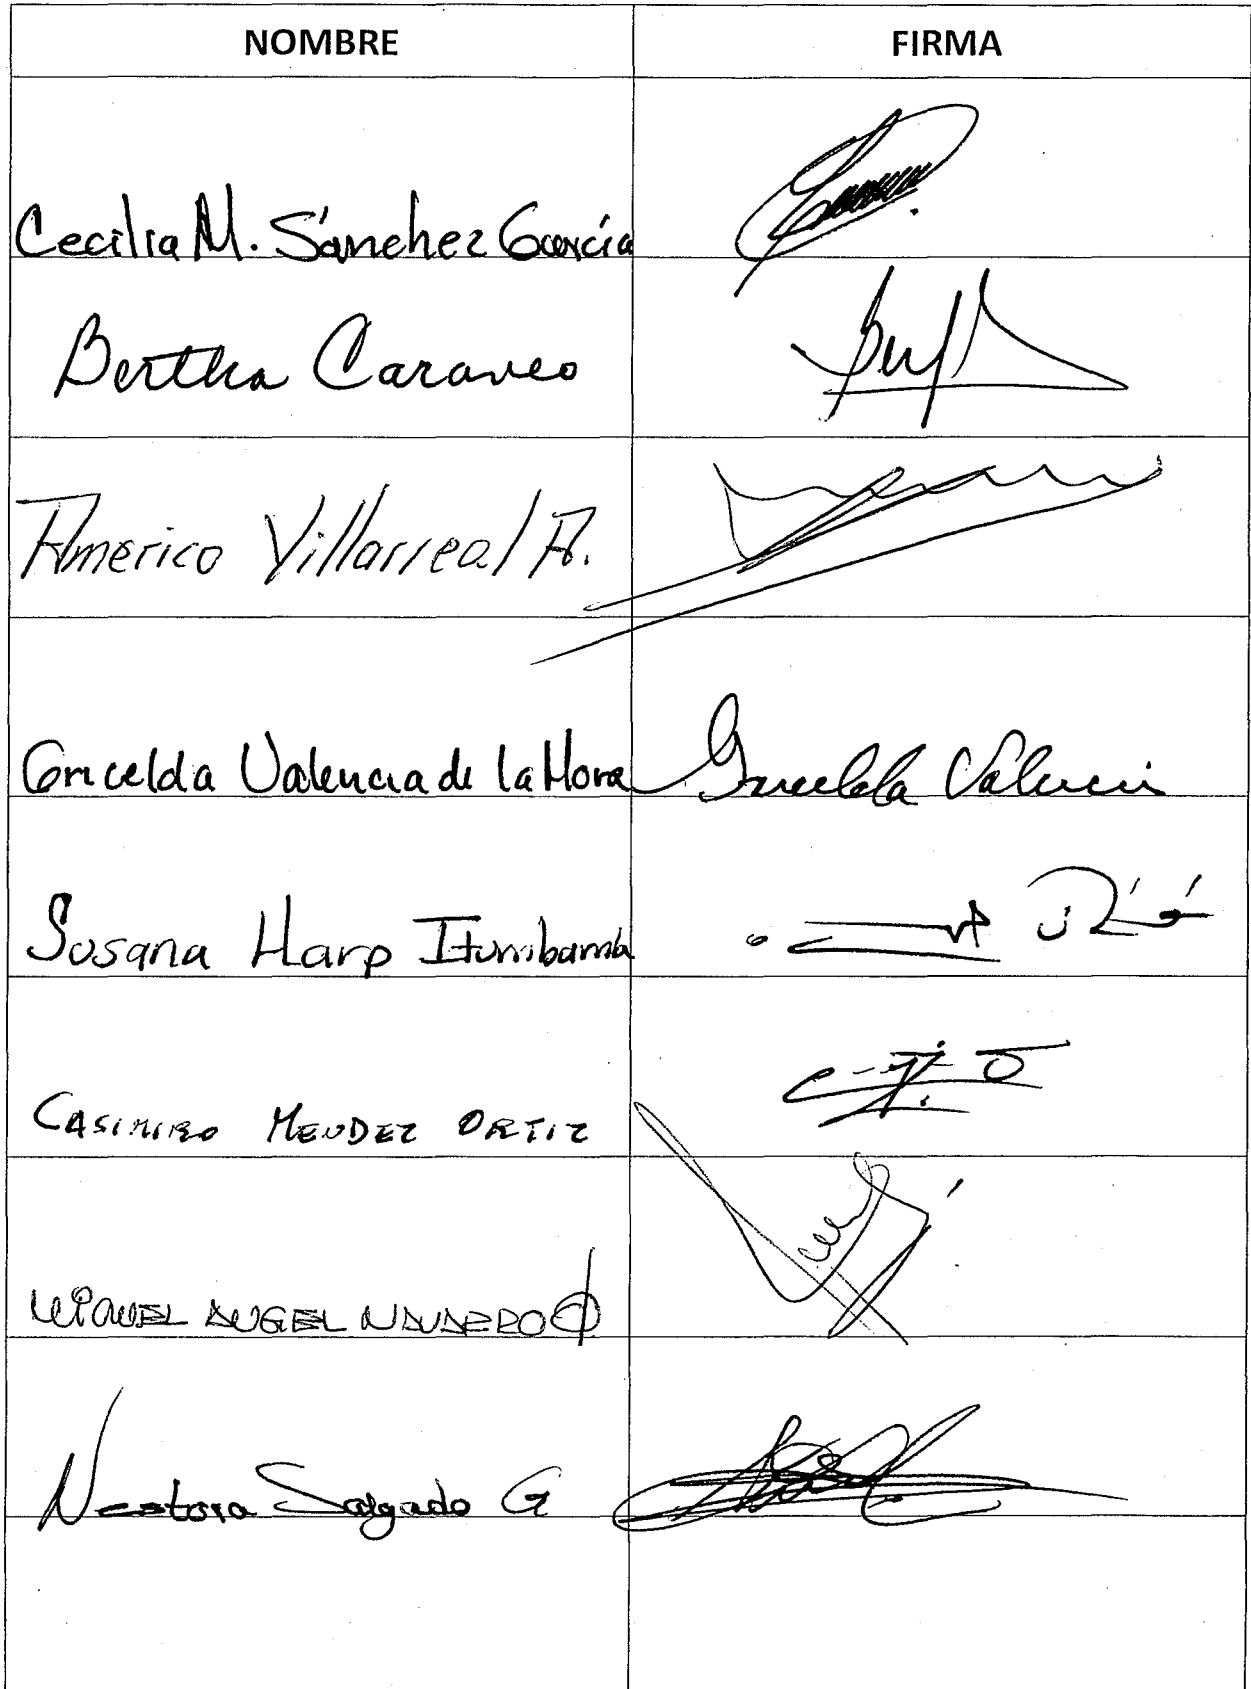 NOMBRE FIRMA
Cecilia M. Sánchez García
Bertha Caraveo
Américo Villarreal A.
Gricelda Valencia de la Mora Gricelda Valencia
Susana Harp Iturribarría
CASIMIRO MENDEZ ORTIZ
MIGUEL ANGEL NAVARRO Q
Nestora Salgado G